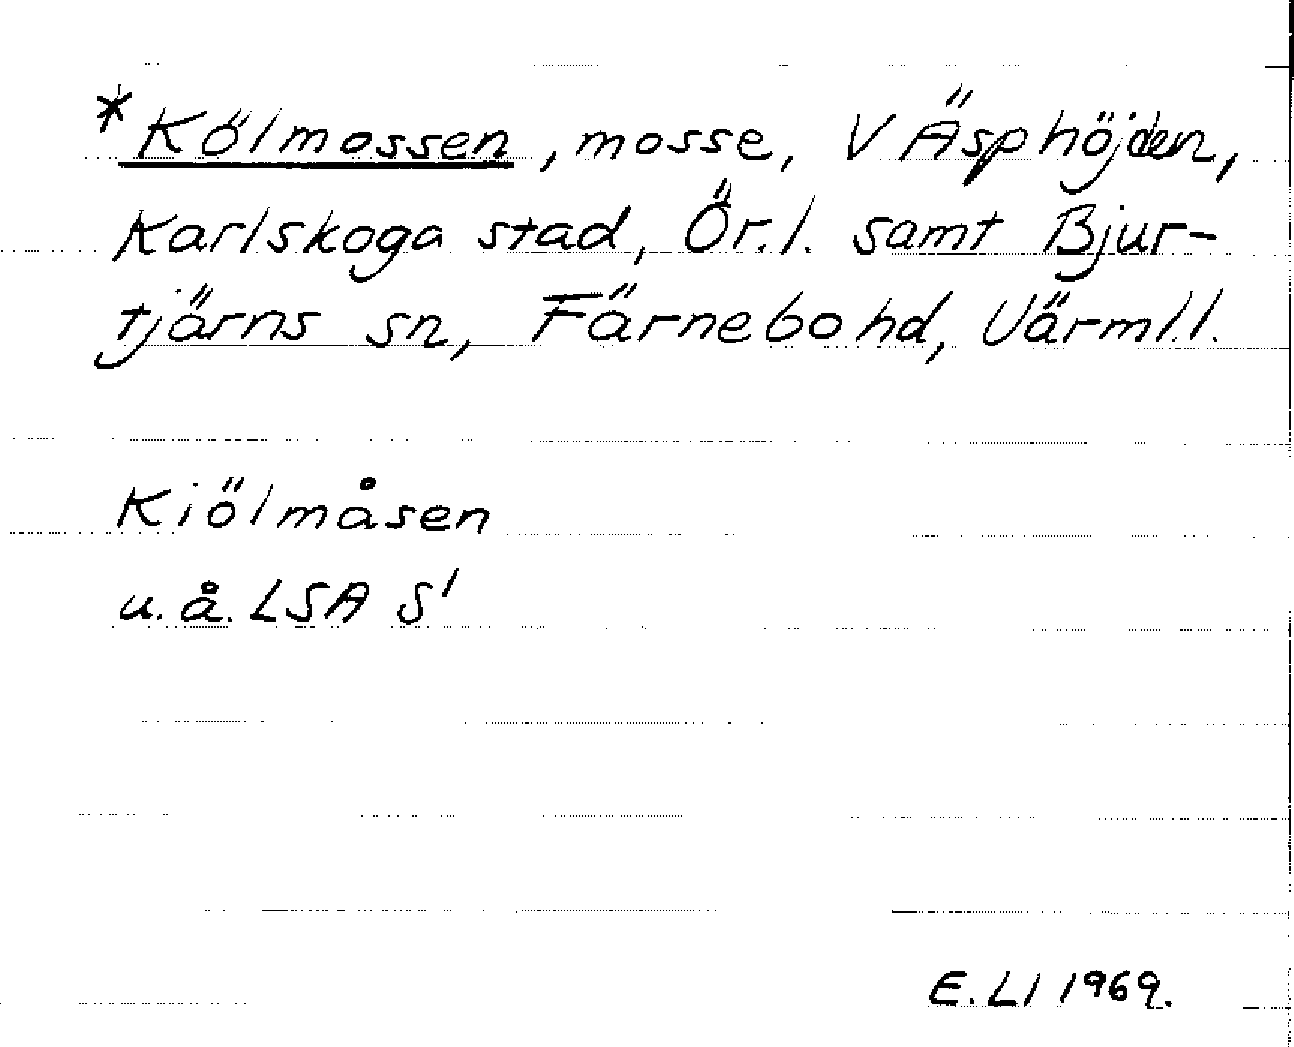 *Kölmossen, mosse, V Äsphöjden,
Karlskoga stad, Ör.l. samt Bjur-
tjärns sn, Färnebo hd, Värml.l.
Kiölmåsen
u.å. LSA S1
E. LI 1969.